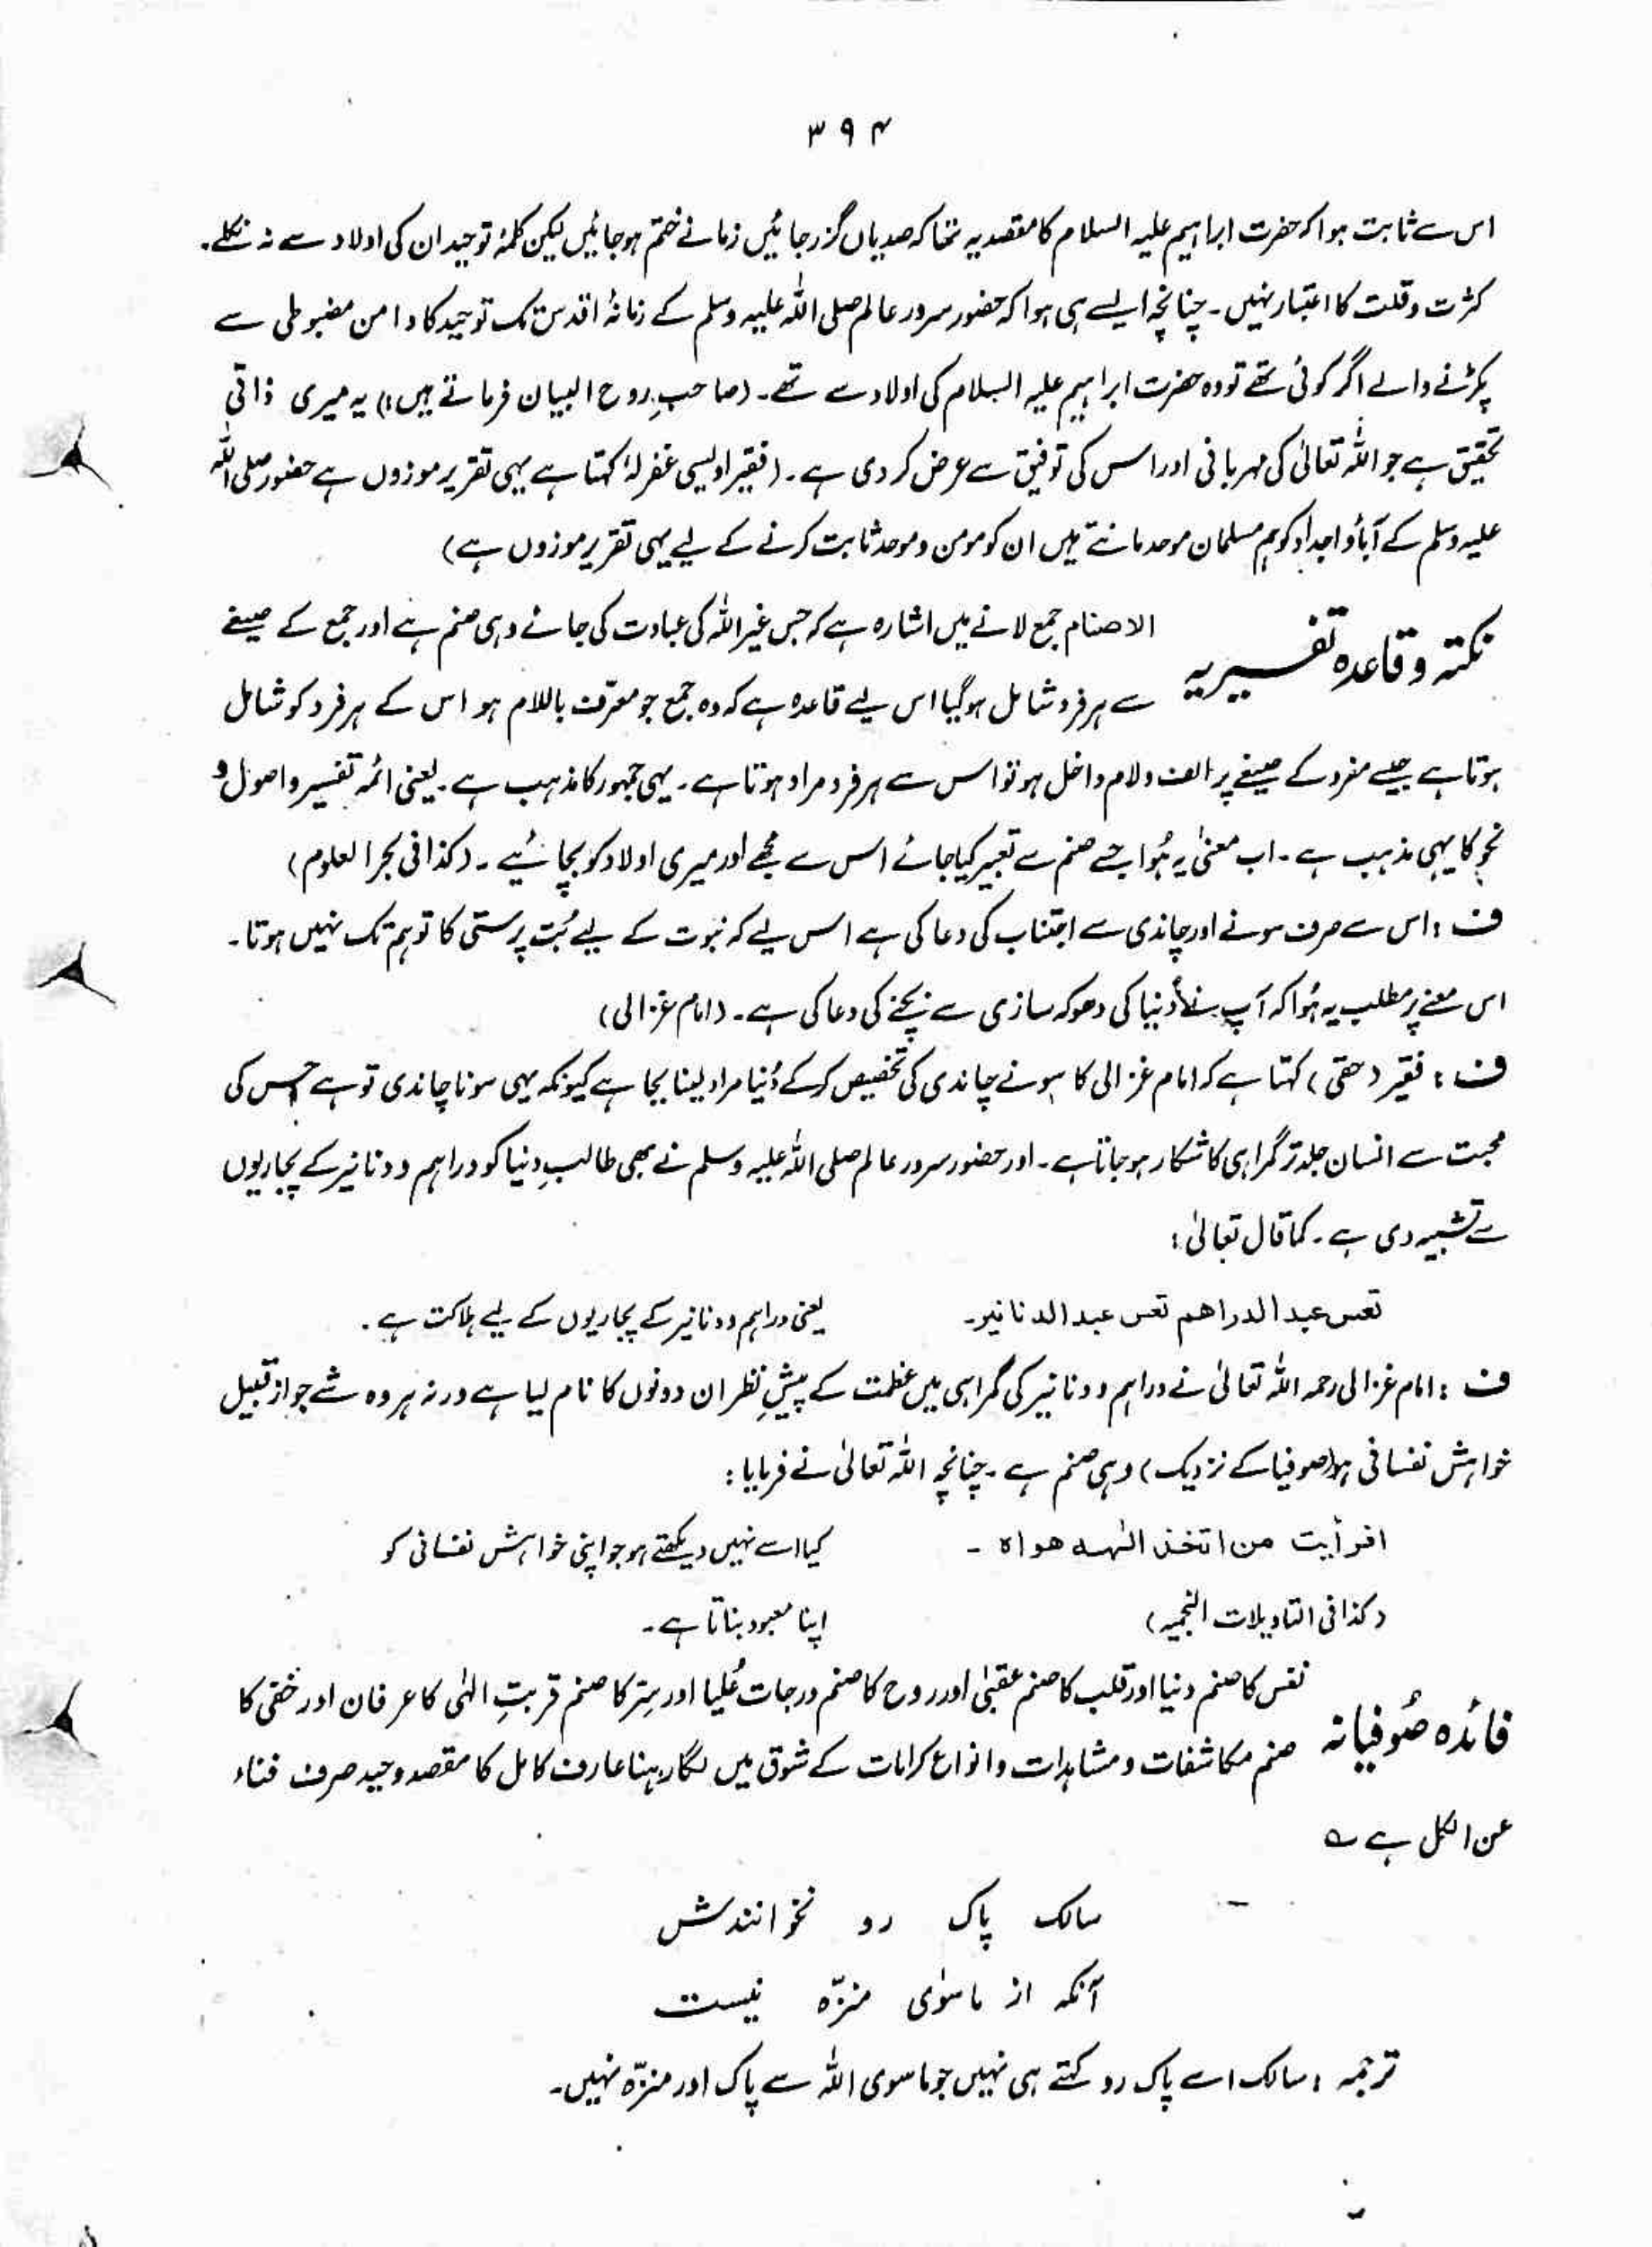 ۳۹۴
اس سے ثابت ہوا کہ حضرت ابراہیم علیہ السلام کا مقصد یہ تھا کہ صدیاں گزر جائیں زمانے ختم ہو جائیں لیکن کلمۂ توحید ان کی اولاد سے نہ نکلے۔
کثرت و قلت کا اعتبار نہیں۔ چنانچہ ایسے ہی ہوا کہ حضور سرور عالم صلی اللہ علیہ وسلم کے زمانۂ اقدس تک توحید کا دامن مضبوطی سے
پکڑنے والے اگر کوئی تھے تو وہ حضرت ابراہیم علیہ السلام کی اولاد سے تھے۔ (صاحبِ روح البیان فرماتے ہیں:) یہ میری ذاتی
تحقیق ہے جو اللہ تعالیٰ کی مہربانی اور اس کی توفیق سے عرض کر دی ہے۔ (فقیر اویسی غفرلہٗ کہتا ہے یہی تقریر موزوں ہے حضور صلی اللہ
علیہ وسلم کے آباؤ اجداد کو ہم مسلمان موحد مانتے ہیں ان کو مومن و موحد ثابت کرنے کے لیے یہی تقریر موزوں ہے)
نکتہ و قاعدہ تفسیریہ الاصنام جمع لانے میں اشارہ ہے کہ جس غیر اللہ کی عبادت کی جائے وہی صنم ہے اور جمع کے صیغے
سے ہر فرد شامل ہو گیا اس لیے قاعدہ ہے کہ وہ جمع جو معرّف باللام ہو اس کے ہر فرد کو شامل
ہوتا ہے جیسے مفرد کے صیغے پر الف و لام داخل ہو تو اس سے ہر فرد مراد ہوتا ہے۔ یہی جمہور کا مذہب ہے۔ یعنی ائمہ تفسیر و اصول و
نحو کا یہی مذہب ہے۔ اب معنیٰ یہ ہُوا جسے صنم سے تعبیر کیا جائے اس سے مجھے اور میری اولاد کو بچائیے۔ (کذا فی بحر العلوم)
ف : اس سے صرف سونے اور چاندی سے اجتناب کی دعا کی ہے اس لیے کہ نبوت کے لیے بُت پرستی کا توہم تک نہیں ہوتا۔
اس معنے پر مطلب یہ ہُوا کہ آپ نے دُنیا کی دھوکہ سازی سے بچنے کی دعا کی ہے۔ (امام غزالی)
ف : فقیر (حقی) کہتا ہے کہ امام غزالی کا سونے چاندی کی تخصیص کر کے دُنیا مراد لینا بجا ہے کیونکہ یہی سونا چاندی تو ہے جس کی
محبت سے انسان جلد تر گمراہی کا شکار ہو جاتا ہے۔ اور حضور سرور عالم صلی اللہ علیہ وسلم نے بھی طالبِ دنیا کو دراہم و دنانیر کے پجاریوں
سے تشبیہ دی ہے۔ کما قال تعالیٰ :
تعس عبد الدراهم تعس عبد الدنانیر۔ یعنی دراہم و دنانیر کے پجاریوں کے لیے ہلاکت ہے۔
ف : امام غزالی رحمہ اللہ تعالیٰ نے دراہم و دنانیر کی گمراہی میں عظمت کے پیشِ نظر ان دونوں کا نام لیا ہے ورنہ ہر وہ شے جو از قبیل
خواہش نفسانی ہو (صوفیا کے نزدیک) وہی صنم ہے۔ چنانچہ اللہ تعالیٰ نے فرمایا :
افرأیت من اتخذ الٰہه هواه ۔ کیا اسے نہیں دیکھتے ہو جو اپنی خواہش نفسانی کو
(کذا فی التاویلات النجمیہ) اپنا معبود بناتا ہے۔
فائدہ صُوفیانہ نفس کا صنم دنیا اور قلب کا صنم عقبیٰ اور روح کا صنم درجات عُلیا اور سِرّ کا صنم قربتِ الٰہی کا عرفان اور خفی کا
صنم مکاشفات و مشاہدات و انواع کرامات کے شوق میں لگا رہنا عارف کامل کا مقصد وحید صرف فناء
عن الکل ہے ؎
سالک پاک رو نخوانندش
آنکہ از ماسوٰی منزّہ نیست
ترجمہ : سالک اسے پاک رو کہتے ہی نہیں جو ماسوی اللہ سے پاک اور منزّہ نہیں۔